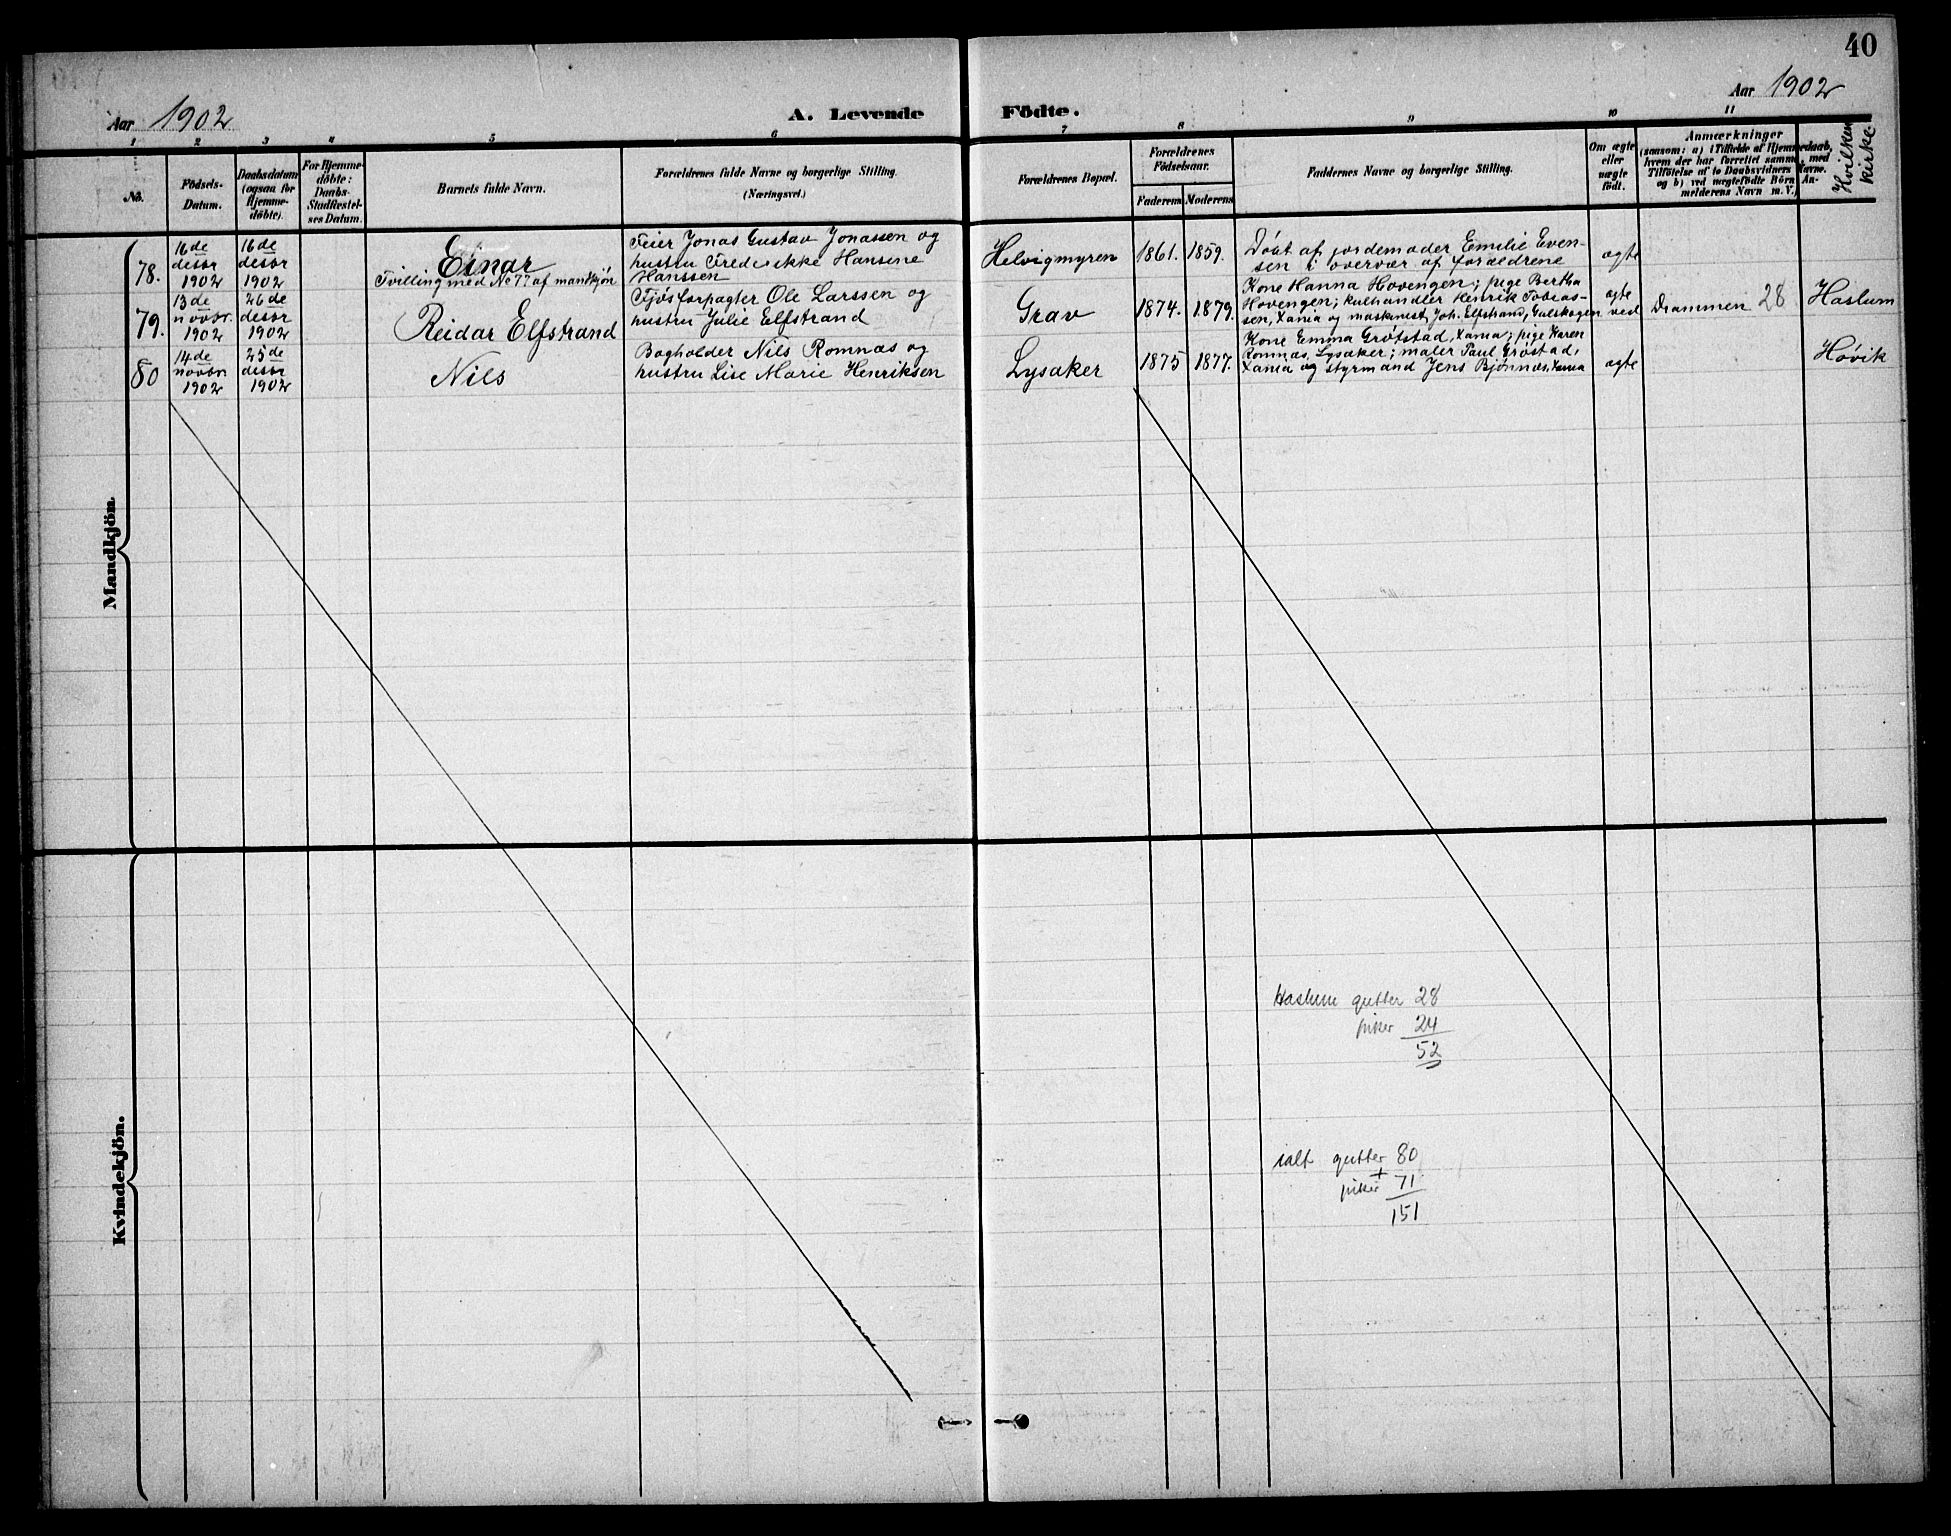 40
Aar 1902
A. Levende Födte.
Aar 1902
1 2 3 4 5 6 7 8 9 10 11
No.
Födsels-
Datum.
Daabsdatum
(ogsaa for
Hjemme-
döbte).
For Hjemme-
döbte:
Daabs-
Stadfæstel-
ses Datum.
Barnets fulde Navn.
Forældrenes fulde Navne og borgerlige Stilling.
(Næringsvei.)
Forældrenes Bopæl.
Forældrenes
Födselsaar.
Faderens Moderens
Faddernes Navne og borgerlige Stilling.
Om ægte
eller
uægte
födt.
Anmærkninger
(saasom: a) i Tilfælde af Hjemmedaab,
hvem der har forrettet samme, med
Tilföielse af to Daabsvidners Navne.
og b) ved uægtefödte Börn An-
melderens Navn m. V.)
Hvilken
kirke.
Mandkjön.
78.
16de
desbr
1902
16de
desbr
1902
Einar
Tvilling med No 77 af mandkjön
Feier Jonas Gustav Jonassen og
hustru Frederikke Hansine
Hanssen
Helvigmyren
1861. 1859.
Döbt af jordemoder Emilie Even-
sen i overvær af forældrene
ægte
79.
13de
novbr.
1902
26de
desbr
1902
Reidar Elfstrand
Fjösforpagter Ole Larssen og
hustru Julie Elfstrand
Grav
1874. 1879.
Kone Hanna Hovengen; pege Bertha
Hovengen; kulhandler Henrik Tobias-
sen, Xania og maskinist Joh. Elfstrand, Gulskogen
ægte
ved
Drammen 28
Haslum
80
14de
novbr.
1902
25de
desbr
1902
Nils
Bogholder Nils Romnæs og
hustru Lise Marie Henriksen
Lysaker
1875 1877.
Kone Emma Grøtstad, Xania; pige Karen
Romnæs, Lysaker; maler Paul Grøstad,
Xania og styrmand Jens Bjønnæs, Xania
ægte
Høvik
Kvindekjön.
Haslum gutter 28
piker 24
52
ialt gutter 80
+
piker 71
151